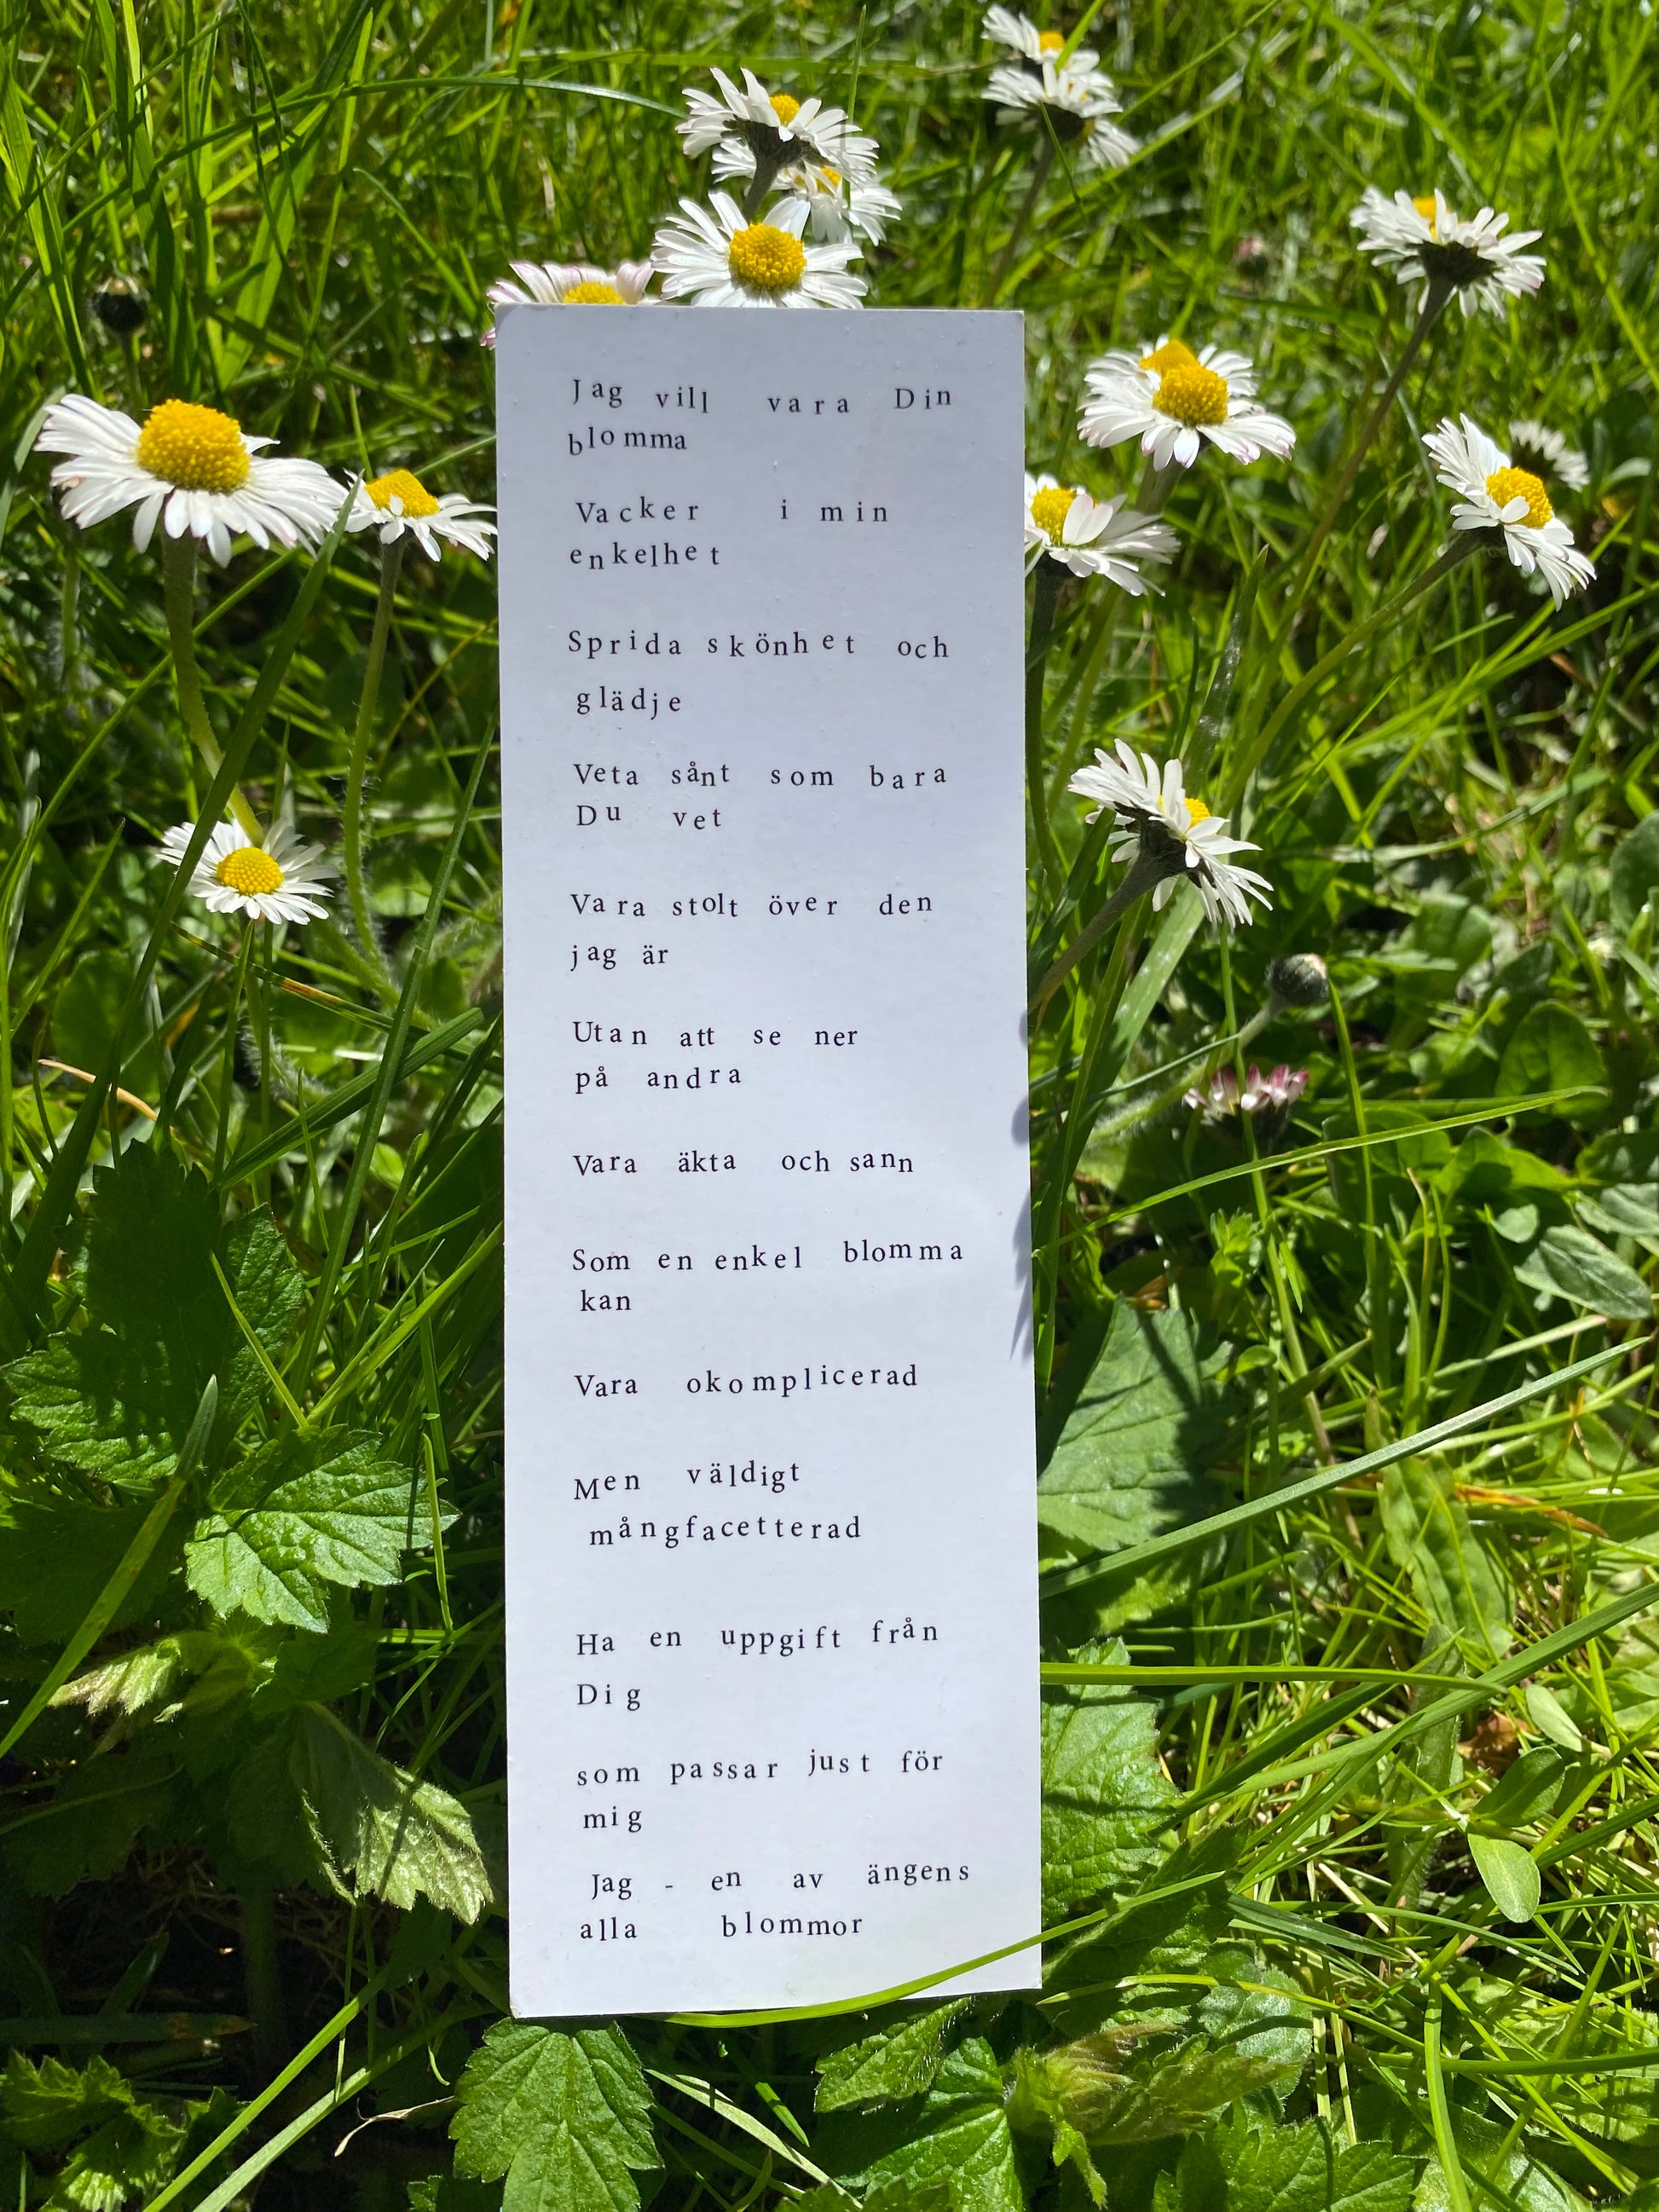 Jag vill vara Din
blomma
Vacker i min
enkelhet
Sprida skönhet och
glädje
Veta sånt som bara
Du vet
Vara stolt över den
jag är
Utan att se ner
på andra
Vara äkta och sann
Som en enkel blomma
kan
Vara okomplicerad
Men väldigt
mångfacetterad
Ha en uppgift från
Dig
som passar just för
mig
Jag - en av ängens
alla blommor